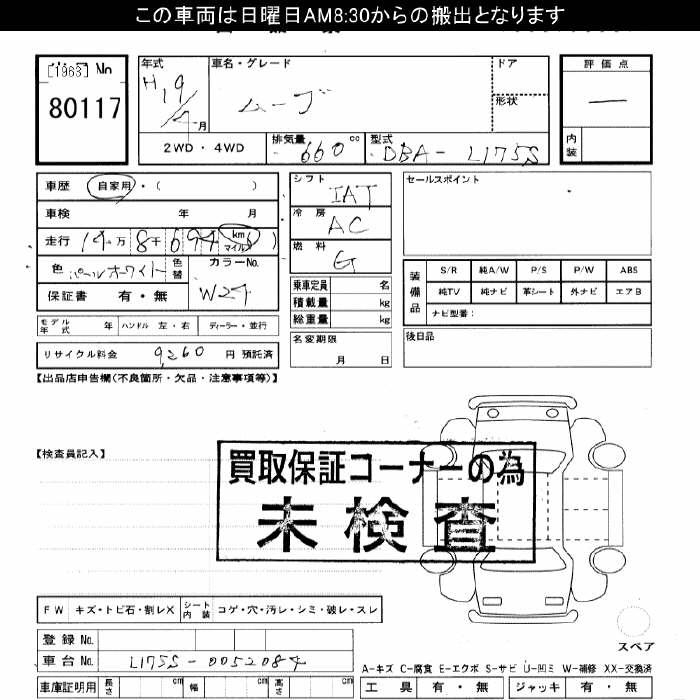 この車両は日曜日AM8:30からの搬出となります
[1963] No
80117
年式
H19/4月
車名・グレード
ムーブ
ドア
形状
評価点
—
内装
2WD・4WD
排気量 660 cc
型式 DBA- L175S
車歴 自家用・( )
車検 年 月
走行 14万8千694 km マイル( )
色 パールホワイト
色替
カラーNo.
W24
保証書 有・無
シフト IAT
冷房 AC
燃料 G
乗車定員 名
積載量 kg
総重量 kg
モデル年式 年 ハンドル 左・右 ディーラー・並行
リサイクル料金 9,260 円 預託済
名変期限
月 日
セールスポイント
装備品
S/R 純A/W P/S P/W ABS
純TV 純ナビ 革シート 外ナビ エアB
ナビ型番:
後日品
【出品店申告欄(不良箇所・欠品・注意事項等)】
【検査員記入】
買取保証コーナーの為
未検査
FW キズ・トビ石・割レX
シート内装 コゲ・穴・汚レ・シミ・破レ・スレ
登録 No.
車台 No. L175S-0052084
車庫証明用 長さ cm 幅 cm 高さ cm
スペア
A-キズ C-腐食 E-エクボ S-サビ U-凹ミ W-補修 XX-交換済
工具 有・無 ジャッキ 有・無